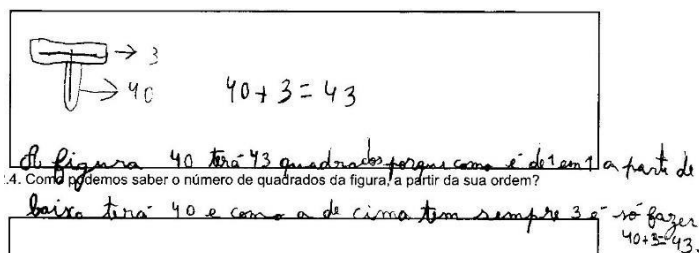 3
40
40 + 3 = 43
A figura 40 terá 43 quadrados porque como é de 1 em 1 a parte de
.4. Como podemos saber o número de quadrados da figura, a partir da sua ordem?
baixo terá 40 e como a de cima tem sempre 3 é só fazer
40+3=43.